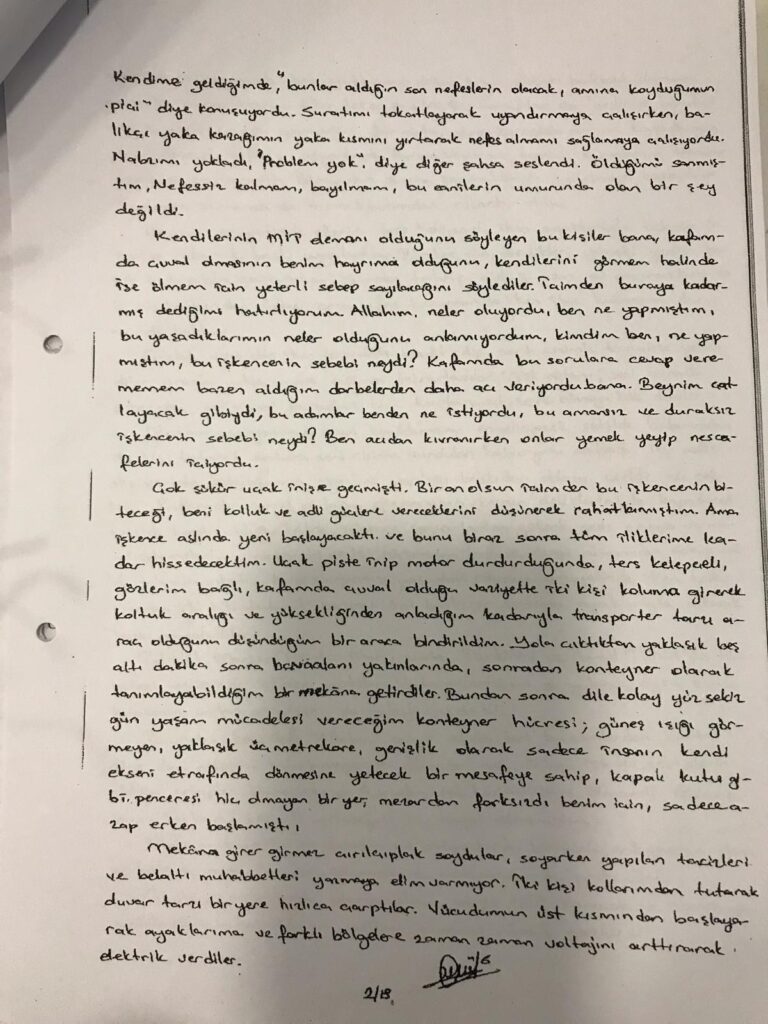 Kendime geldiğimde, "bunlar aldığın son nefeslerin olacak, amına koyduğumun
piçi" diye konuşuyordu. Suratımı tokatlayarak uyandırmaya çalışırken, ba-
lıkçı yaka kazağımın yaka kısmını yırtarak nefes almamı sağlamaya çalışıyordu.
Nabzımı yokladı, "Problem yok". diye diğer şahsa seslendi. Öldüğümü sanmış-
tım, Nefessiz kalmam, bayılmam, bu canilerin umurunda olan bir şey
değildi.
Kendilerinin MİT elemanı olduğunu söyleyen bu kişiler bana, kafam-
da çuval olmasının benim hayrıma olduğunu, kendilerini görmem halinde
ise ölmem için yeterli sebep sayılacağını söylediler. İçimden buraya kadar-
mış dediğimi hatırlıyorum. Allahım, neler oluyordu, ben ne yapmıştım,
bu yaşadıklarımın neler olduğunu anlamıyordum, kimdim ben, ne yap-
mıştım, bu işkencenin sebebi neydi? Kafamda bu sorulara cevap vere-
memem bazen aldığım darbelerden daha acı veriyordu bana. Beynim çat-
layacak gibiydi, bu adamlar benden ne istiyordu, bu amansız ve duraksız
işkencenin sebebi neydi? Ben acıdan kıvranırken onlar yemek yeyip nesca-
felerini içiyordu.
Çok şükür uçak inişe geçmişti. Bir an olsun içimden bu işkencenin bi-
teceği, beni kolluk ve adli güçlere vereceklerini düşünerek rahatlamıştım. Ama
işkence aslında yeni başlayacaktı. ve bunu biraz sonra tüm iliklerime ka-
dar hissedecektim. Uçak piste inip motor durdurduğunda, ters kelepçeli,
gözlerim bağlı, kafamda çuval olduğu vaziyette iki kişi koluma girerek
koltuk aralığı ve yüksekliğinden anladığım kadarıyla transporter tarzı a-
raç olduğunu düşündüğüm bir araca bindirildim. Yola çıktıktan yaklaşık beş
altı dakika sonra havaalanı yakınlarında, sonradan konteyner olarak
tanımlayabildiğim bir mekâna getirdiler. Bundan sonra dile kolay yüz sekiz
gün yaşam mücadelesi vereceğim konteyner hücresi; güneş ışığı gör-
meyen, yaklaşık üç metrekare, genişlik olarak sadece insanın kendi
ekseni etrafında dönmesine yetecek bir mesafeye sahip, kapalı kutu gi-
bi. penceresi hiç olmayan bir yer, mezardan farksızdı benim için, sadece a-
zap erken başlamıştı,
Mekâna girer girmez çırılçıplak soydular, soyarken yapılan tacizleri
ve belaltı muhabbetleri yazmaya elim varmıyor. İki kişi kollarımdan tutarak
duvar tarzı bir yere hızlıca çarptılar. Vücudumun üst kısmından başlaya-
rak ayaklarıma ve farklı bölgelere zaman zaman voltajını arttırarak
elektrik verdiler.
2/19